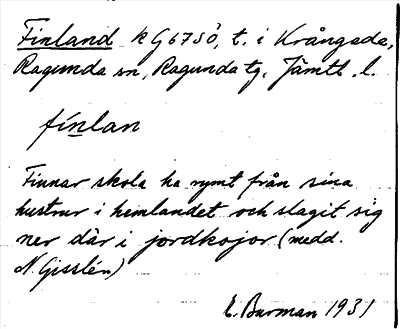 Finland k G6750, t. i Krångede,
Ragunda sn, Ragunda tg, Jämtl. l.
finlan
Finnar skola ha rymt från sina
hustrur i hemlandet och slagit sig
ner där i jordkojor (medd.
N. Gisslén)
E. Burman 1931